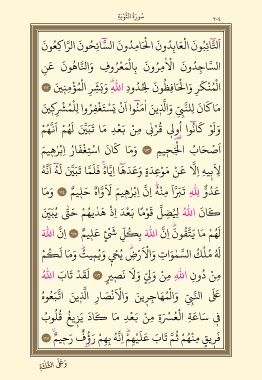 سُورَةُ التَّوْبَةِ
٢٠٤
اَلتَّٓائِبُونَ الْعَابِدُونَ الْحَامِدُونَ السَّٓائِحُونَ الرَّاكِعُونَ
السَّاجِدُونَ الْاٰمِرُونَ بِالْمَعْرُوفِ وَالنَّاهُونَ عَنِ
الْمُنْكَرِ وَالْحَافِظُونَ لِحُدُودِ اللّٰهِ وَبَشِّرِ الْمُؤْمِن۪ينَ ١١٢
مَا كَانَ لِلنَّبِيِّ وَالَّذ۪ينَ اٰمَنُٓوا اَنْ يَسْتَغْفِرُوا لِلْمُشْرِك۪ينَ
وَلَوْ كَانُٓوا اُو۬ل۪ي قُرْبٰى مِنْ بَعْدِ مَا تَبَيَّنَ لَهُمْ اَنَّهُمْ
اَصْحَابُ الْجَح۪يمِ ١١٣ وَمَا كَانَ اسْتِغْفَارُ اِبْرٰه۪يمَ
لِاَب۪يهِ اِلَّا عَنْ مَوْعِدَةٍ وَعَدَهَٓا اِيَّاهُ فَلَمَّا تَبَيَّنَ لَهُٓ اَنَّهُ
عَدُوٌّ لِلّٰهِ تَبَرَّاَ مِنْهُ اِنَّ اِبْرٰه۪يمَ لَاَوَّاهٌ حَل۪يمٌ ١١٤ وَمَا
كَانَ اللّٰهُ لِيُضِلَّ قَوْمًا بَعْدَ اِذْ هَدٰيهُمْ حَتّٰى يُبَيِّنَ
لَهُمْ مَا يَتَّقُونَ اِنَّ اللّٰهَ بِكُلِّ شَيْءٍ عَل۪يمٌ ١١٥ اِنَّ اللّٰهَ
لَهُ مُلْكُ السَّمٰوَاتِ وَالْاَرْضِ يُحْي۪ وَيُم۪يتُ وَمَا لَكُمْ
مِنْ دُونِ اللّٰهِ مِنْ وَلِيٍّ وَلَا نَص۪يرٍ ١١٦ لَقَدْ تَابَ اللّٰهُ
عَلَى النَّبِيِّ وَالْمُهَاجِر۪ينَ وَالْاَنْصَارِ الَّذ۪ينَ اتَّبَعُوهُ
ف۪ي سَاعَةِ الْعُسْرَةِ مِنْ بَعْدِ مَا كَادَ يَز۪يغُ قُلُوبُ
فَر۪يقٍ مِنْهُمْ ثُمَّ تَابَ عَلَيْهِمْ اِنَّهُ بِهِمْ رَؤُ۫فٌ رَح۪يمٌ ١١٧
وَعَلَى الثَّلٰثَةِ